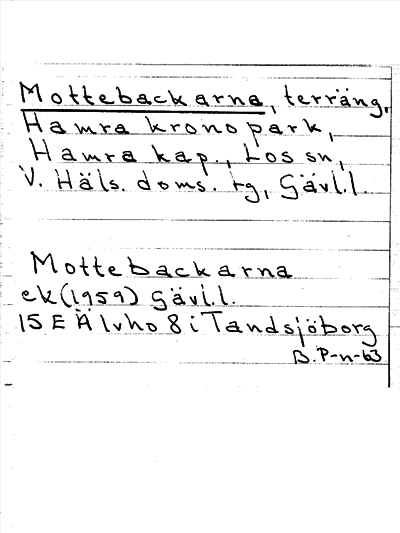 Mottebackarna, terräng,
Hamra kronopark,
Hamra kap., Los sn,
V. Häls. doms. tg, Gävl.l.
Mottebackarna
ek (1959) Gävl.l.
15 E Älvho 8 i Tandsjöborg
B. P-n-63